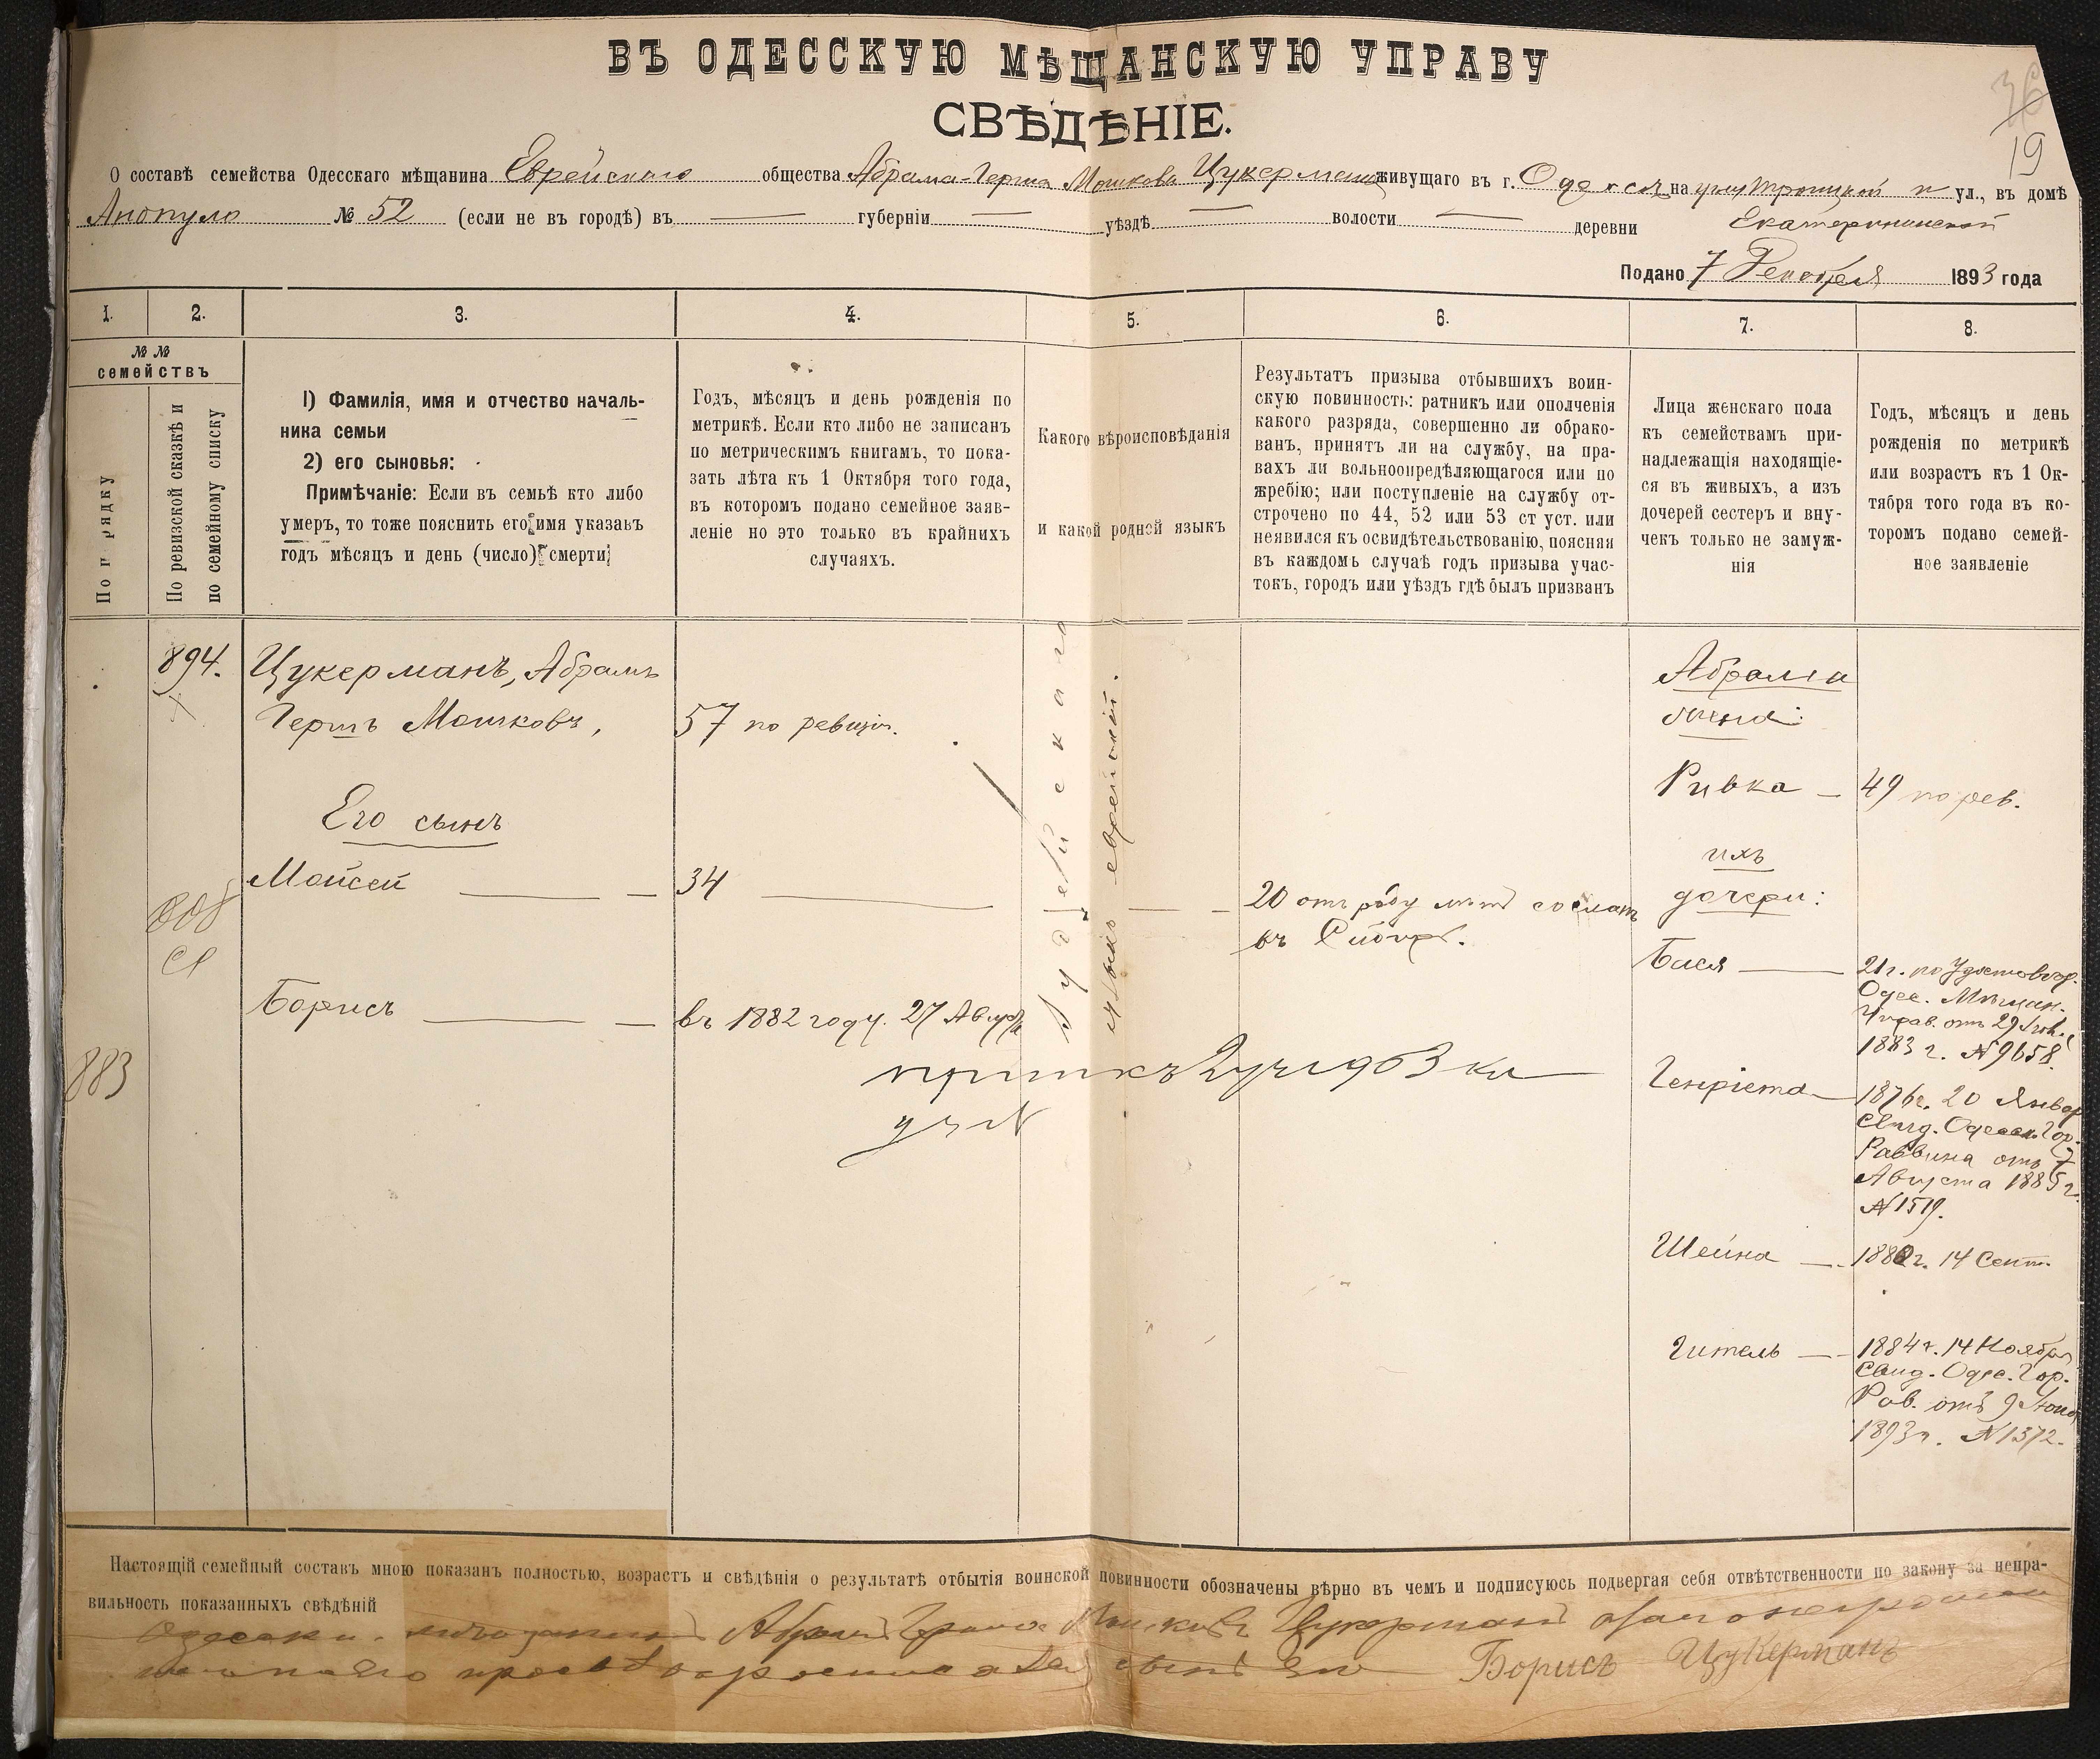 ВЪ ОДЕССКУЮ МѢЩАНСКУЮ УПРАВУ
СВѢДѢНІЕ.
36
19
О составѣ семейства Одесскаго мѣщанина Еврейскаго общества Абрама-Герша Мошкова Цукермана живущаго въ г. Одессѣ на углу Троицкой и ул., въ домѣ
Анопуло № 52 (если не въ городѣ) въ — губерніи — уѣздѣ — волости — деревни Екатерининской
Подано 7 Декабря 1893 года
1. 2. 3. 4. 5. 6. 7. 8.
№ №
семействъ
По п рядку
По ревизской сказкѣ и
по семейному списку
1) Фамилія, имя и отчество началь-
ника семьи
2) его сыновья:
Примѣчаніе: Если въ семьѣ кто либо
умеръ, то тоже пояснить его имя указавъ
годъ мѣсяцъ и день (число) смерти
Годъ, мѣсяцъ и день рожденія по
метрикѣ. Если кто либо не записанъ
по метрическимъ книгамъ, то пока-
зать лѣта къ 1 Октября того года,
въ которомъ подано семейное заяв-
леніе но это только въ крайнихъ
случаяхъ.
Какого вѣроисповѣданія
и какой родной языкъ
Результатъ призыва отбывшихъ воин-
скую повинность: ратникъ или ополченія
какого разряда, совершенно ли обрако-
ванъ, принятъ ли на службу, на пра-
вахъ ли вольноопредѣляющагося или по
жребію; или поступленіе на службу от-
строчено по 44, 52 или 53 ст уст. или
неявился къ освидѣтельствованію, поясняя
въ каждомъ случаѣ годъ призыва учас-
токъ, городъ или уѣздъ гдѣ былъ призванъ
Лица женскаго пола
къ семействамъ при-
надлежащія находящіе-
ся въ живыхъ, а изъ
дочерей сестеръ и вну-
чекъ только не замуж-
нія
Годъ, мѣсяцъ и день
рожденія по метрикѣ
или возрастъ къ 1 Ок-
тября того года въ ко-
торомъ подано семей-
ное заявленіе
894.
Цукерманъ, Абрамъ
Гершъ Мошковъ,
57 по ревизіи.
Іудейскаго
языкъ еврейскій.
Абрама
жена:
Ривка — 49 по рев.
Его сынъ
Мойсей — 34 —
20 отъ роду лѣтъ сосланъ
въ Сибирь.
ихъ
дочери:
Бася — 21 г. по Удостовер.
Одес. Мѣщан.
Управ. отъ 29 Іюн.
1883 г. № 9658.
Борисъ — въ 1882 году. 27 Августа
883
Генріета — 1876 г. 20 Январ
Свид. Одесск. Гор.
Раввина отъ 7
Августа 1885 г.
№ 1519.
Шейна — 1880 г. 14 Сент.
Гитель — 1884 г. 14 Ноября
Свид. Одес. Гор.
Рав. отъ 9 Іюня
1893 г. № 1372.
Настоящій семейный составъ мною показанъ полностью, возрастъ и свѣдѣнія о результатѣ отбытія воинской повинности обозначены вѣрно въ чемъ и подписуюсь подвергая себя отвѣтственности по закону за непра-
вильность показанныхъ свѣдѣній
Абрамъ Гершъ Мошковъ Цукерманъ
сынъ его Борисъ Цукерманъ